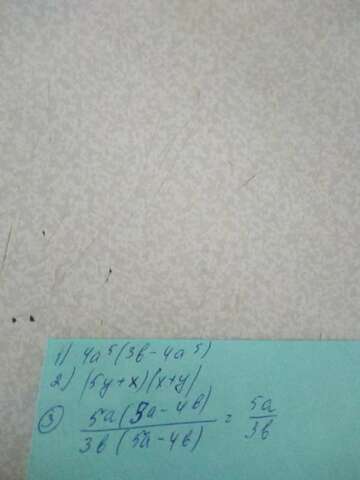 1) 4a⁵(3b-4a⁵)
2) (5y+x)(x+y)
③ 5a(5a-4b) / 3b(5a-4b) = 5a / 3b